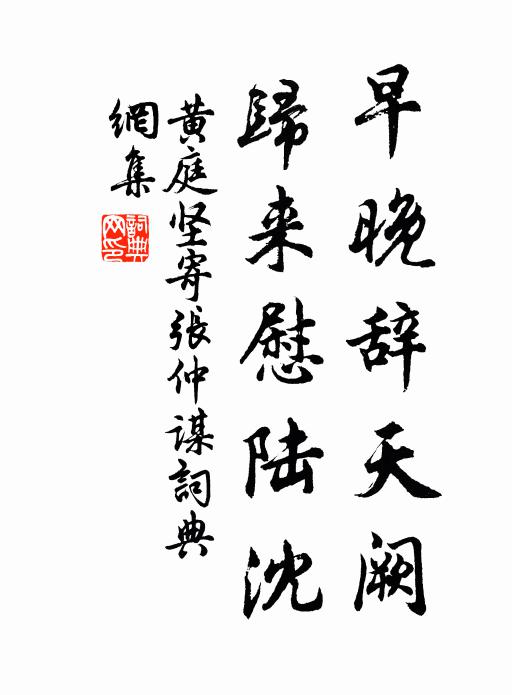 早晚辞天阙
歸来慰陆沈
黄庭坚寄張仲谋詞典
網集
詞典网印